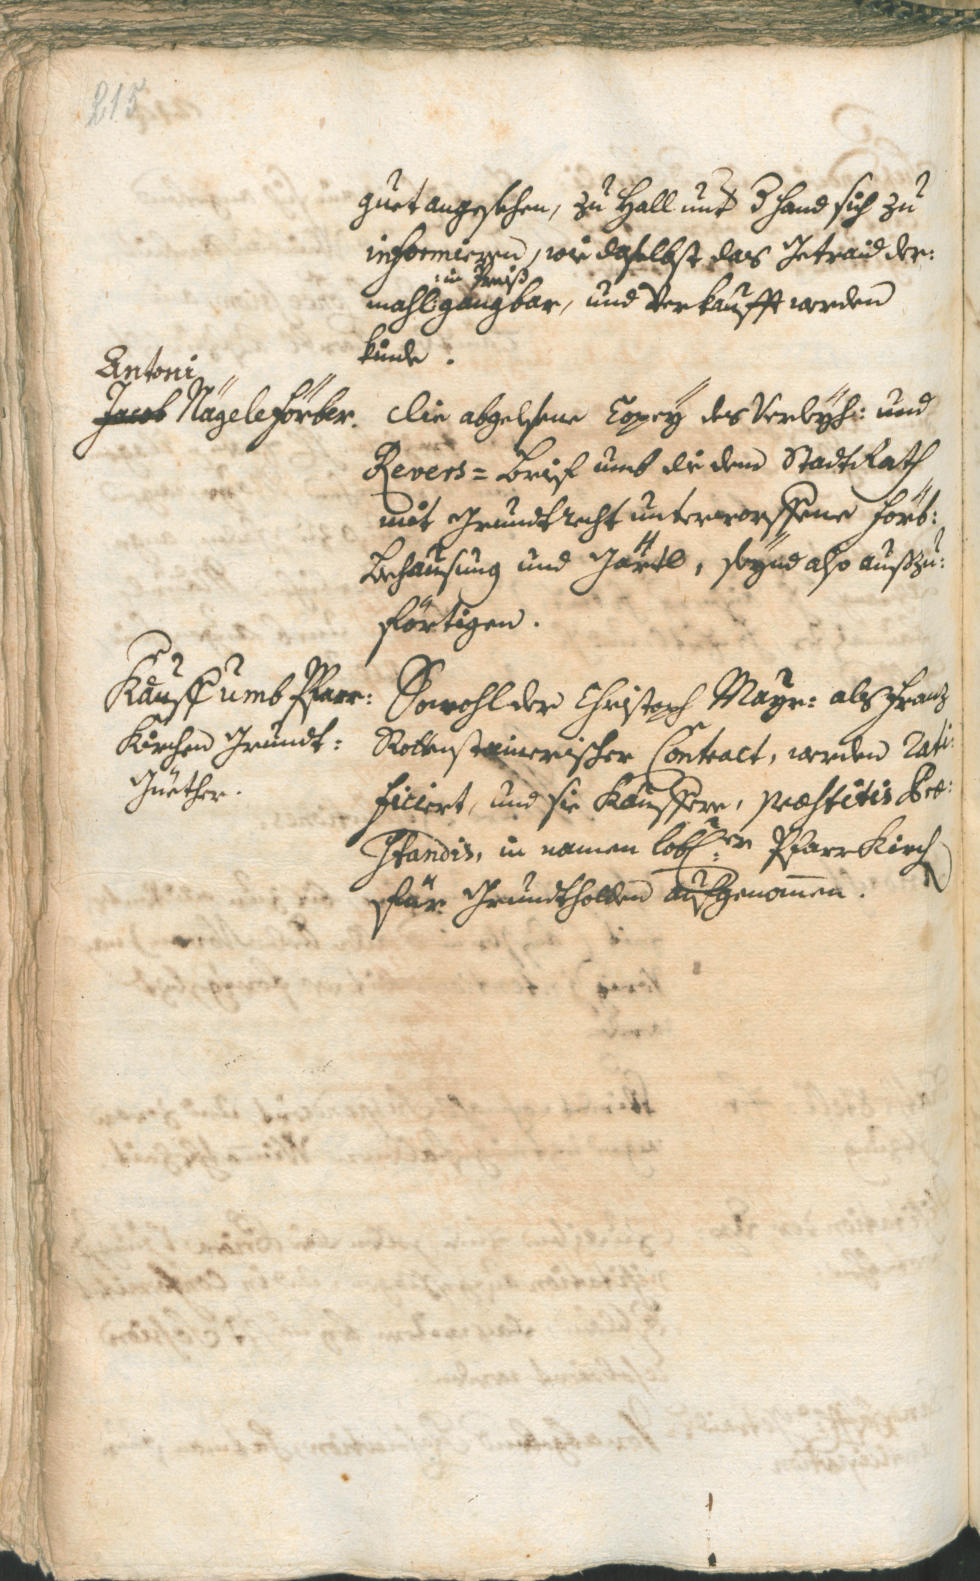 215
guet angesehen, zu Hall und handt sich zu
informieren, wie daselbst das Getraid der:
:in Preiß
mahl: gangbar, und Verkaufft werden
künde.
Antoni
Jacob Nägele Förber.
Die abgelesene Copey des Verleyh: und
Revers= Brief umb die dem Stadt Rath
mit Grundtrecht unterworffene Förb:
Behausung und Gärtl, seynd also auszu:
förtigen.
Kauff umb Pfarr:
Kirchen Grundt:
Güether.
Sowohl der Christoph Mayr: als Franz
Rottenstainerischer Contract, werden rati:
ficiert, und sie Käuffere, præstitis Præ:
standis, in namen lobl: er PfarrKirch
für Grundtholden aufgenomen.